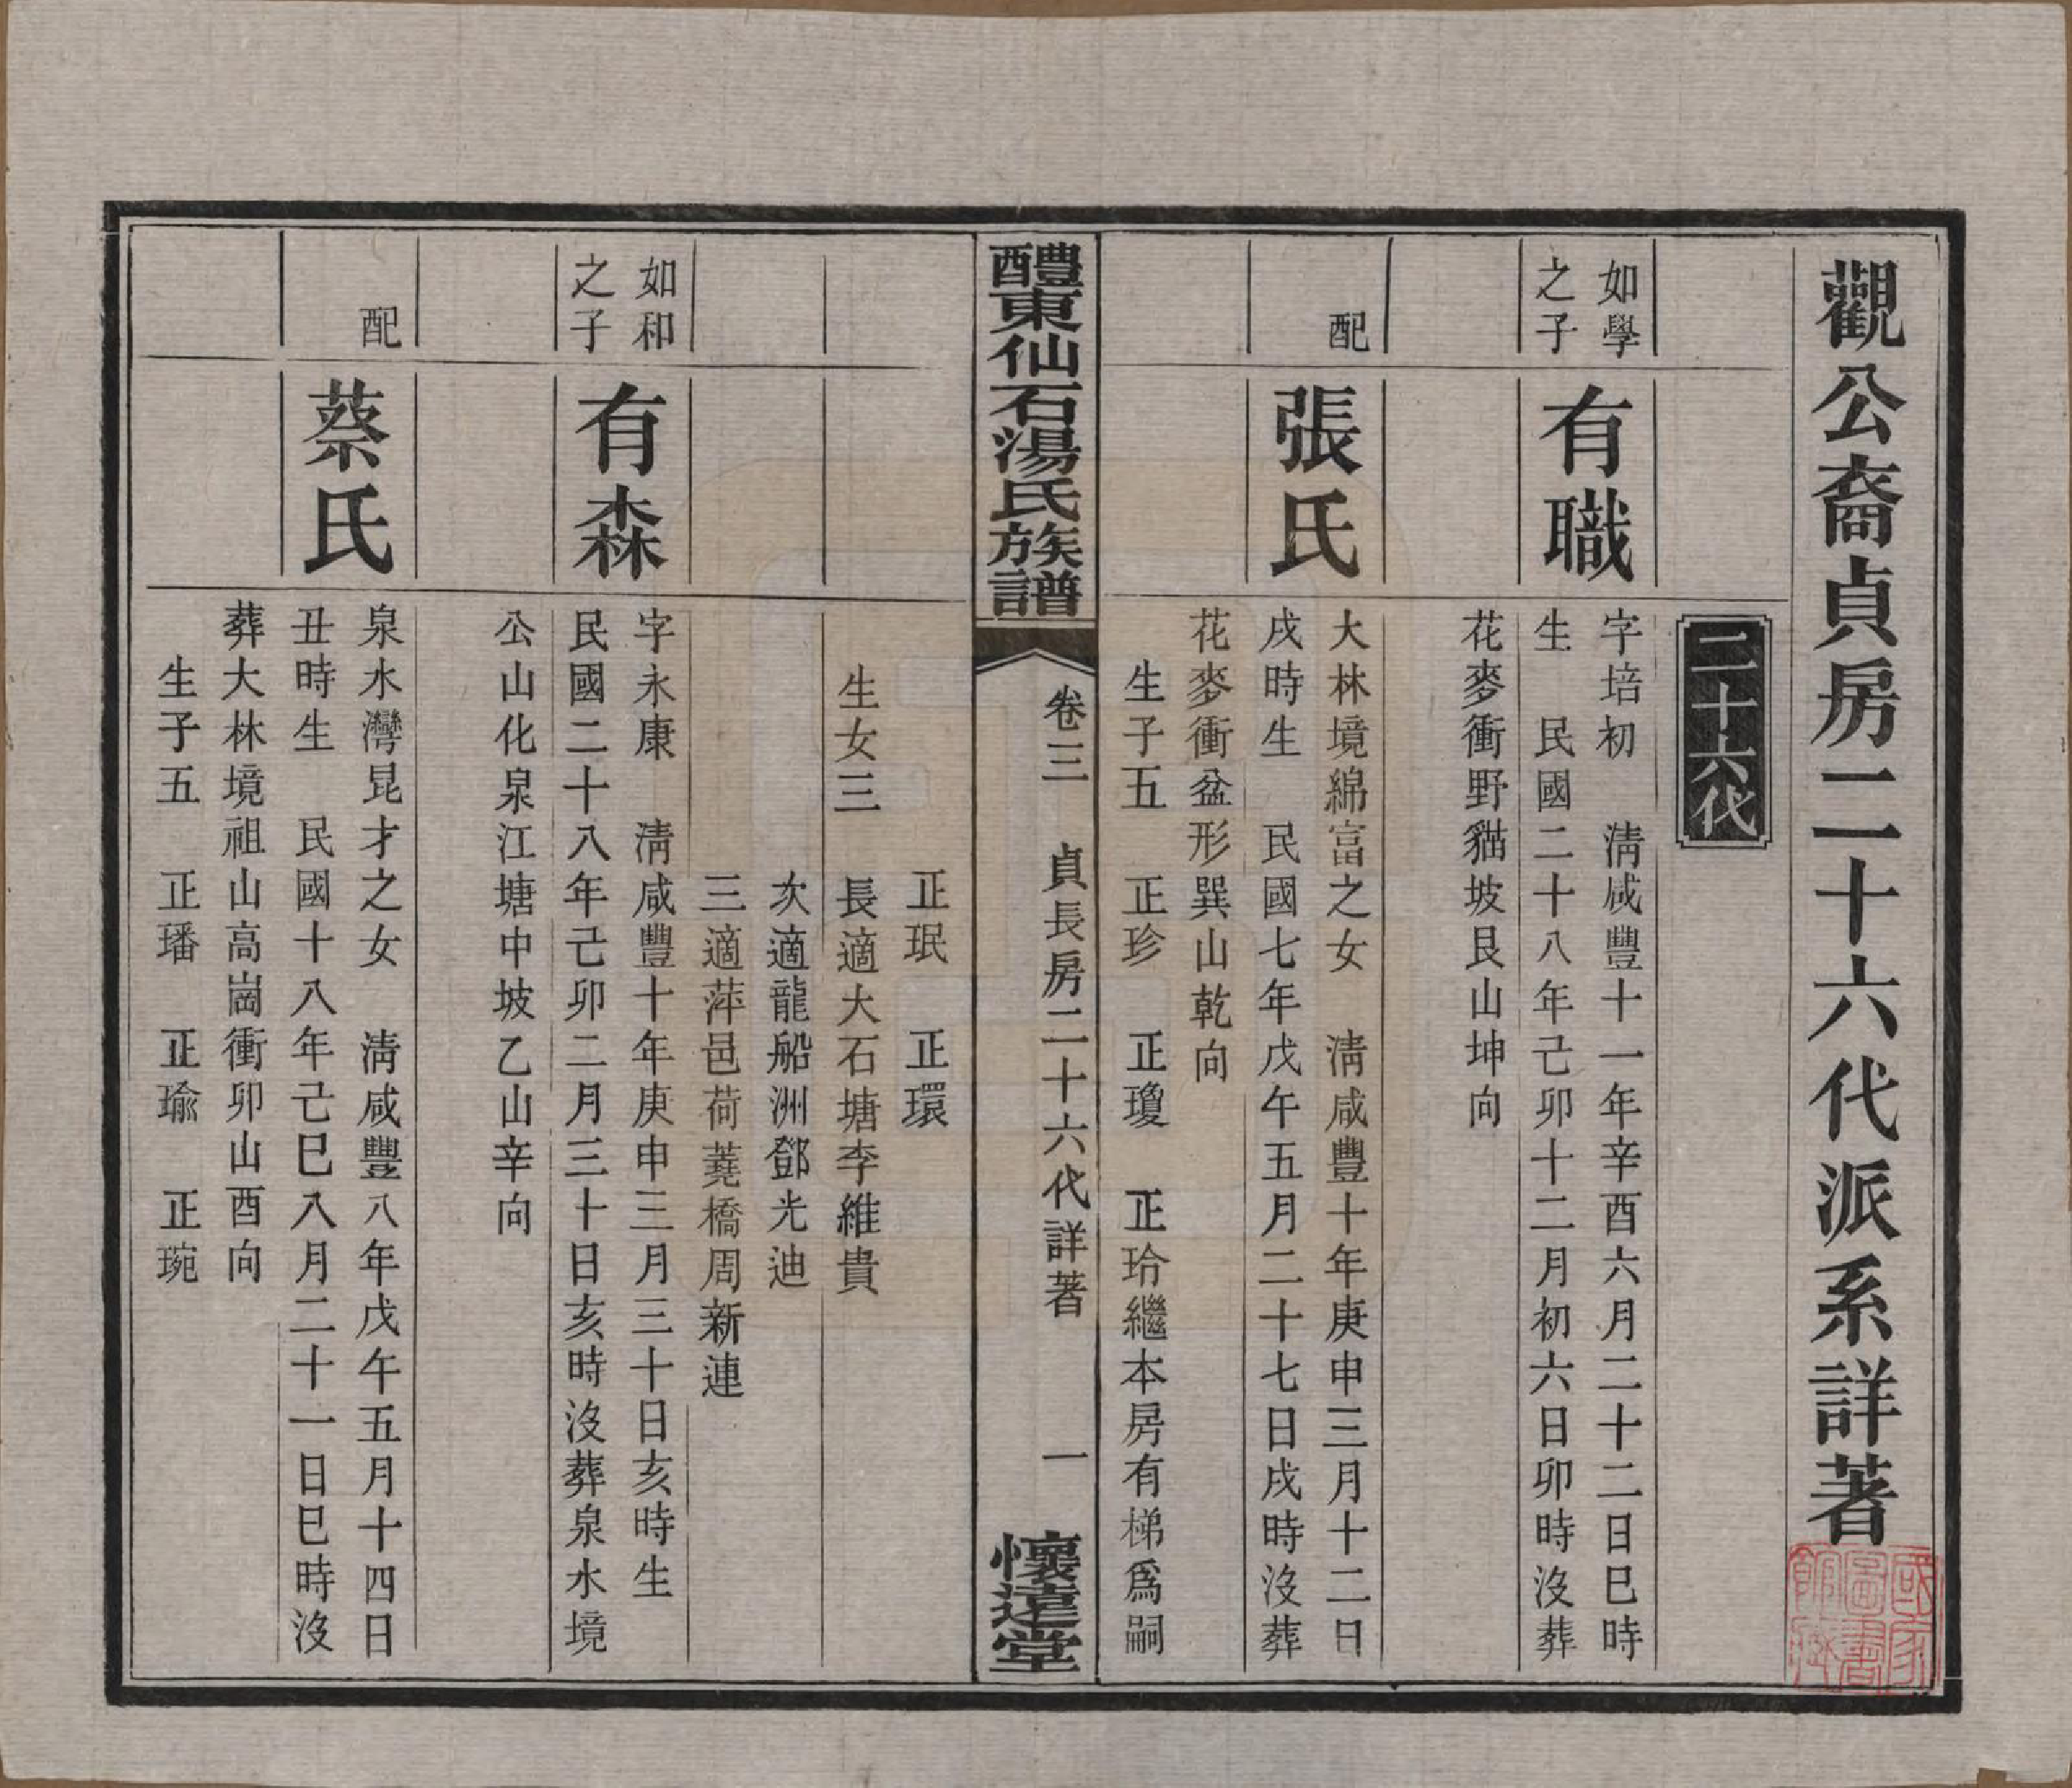 觀公裔貞房二十六代派系詳著
二十六代
如學
之子
有職
字培初 清咸豐十一年辛酉六月二十二日巳時
生 民國二十八年己卯十二月初六日卯時沒葬
花麥衝野貓坡艮山坤向
配
張氏
大林境綿富之女 清咸豐十年庚申三月十二日
戌時生 民國七年戊午五月二十七日戌時沒葬
花麥衝盆形巽山乾向
生子五 正珍 正瓊 正玲繼本房有梯爲嗣
醴東仙石湯氏族譜
卷三 貞長房二十六代詳著 一
懷遠堂
正珉 正環
生女三 長適大石塘李維貴
次適龍船洲鄧光迪
三適萍邑荷蕘橋周新連
如和
之子
有森
字永康 清咸豐十年庚申三月三十日亥時生
民國二十八年己卯二月三十日亥時沒葬泉水境
公山化泉江塘中坡乙山辛向
配
蔡氏
泉水灣昆才之女 清咸豐八年戊午五月十四日
丑時生 民國十八年己巳八月二十一日巳時沒
葬大林境祖山高崗衝卯山酉向
生子五 正璠 正瑜 正琬
國家圖書館藏